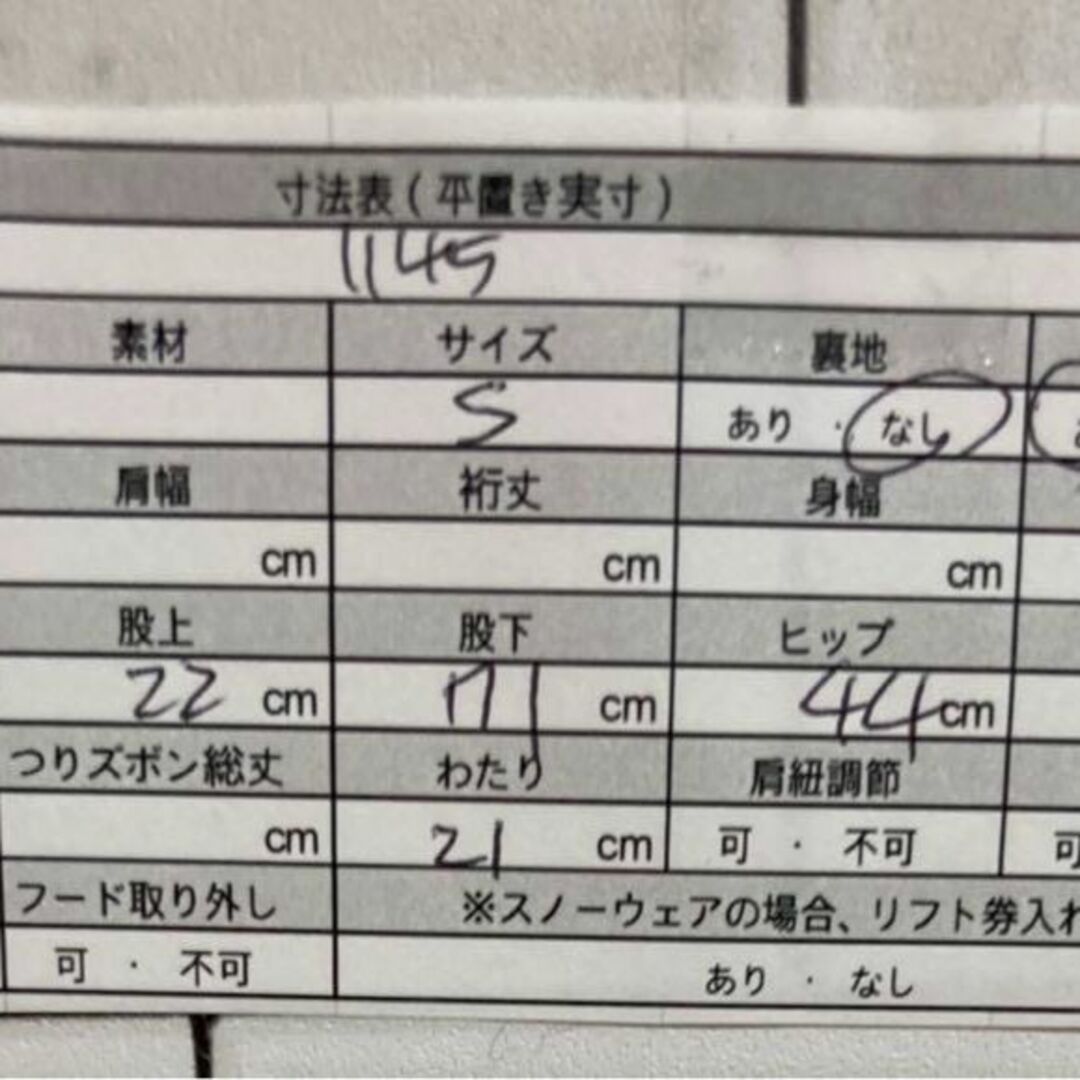 寸法表(平置き実寸)
1145
素材 サイズ 裏地
S あり ・ なし
肩幅 裄丈 身幅
cm cm cm
股上 股下 ヒップ
22 cm 71 cm 44 cm
つりズボン総丈 わたり 肩紐調節
cm 21 cm 可 ・ 不可 可
フード取り外し ※スノーウェアの場合、リフト券入れ
可 ・ 不可 あり ・ なし